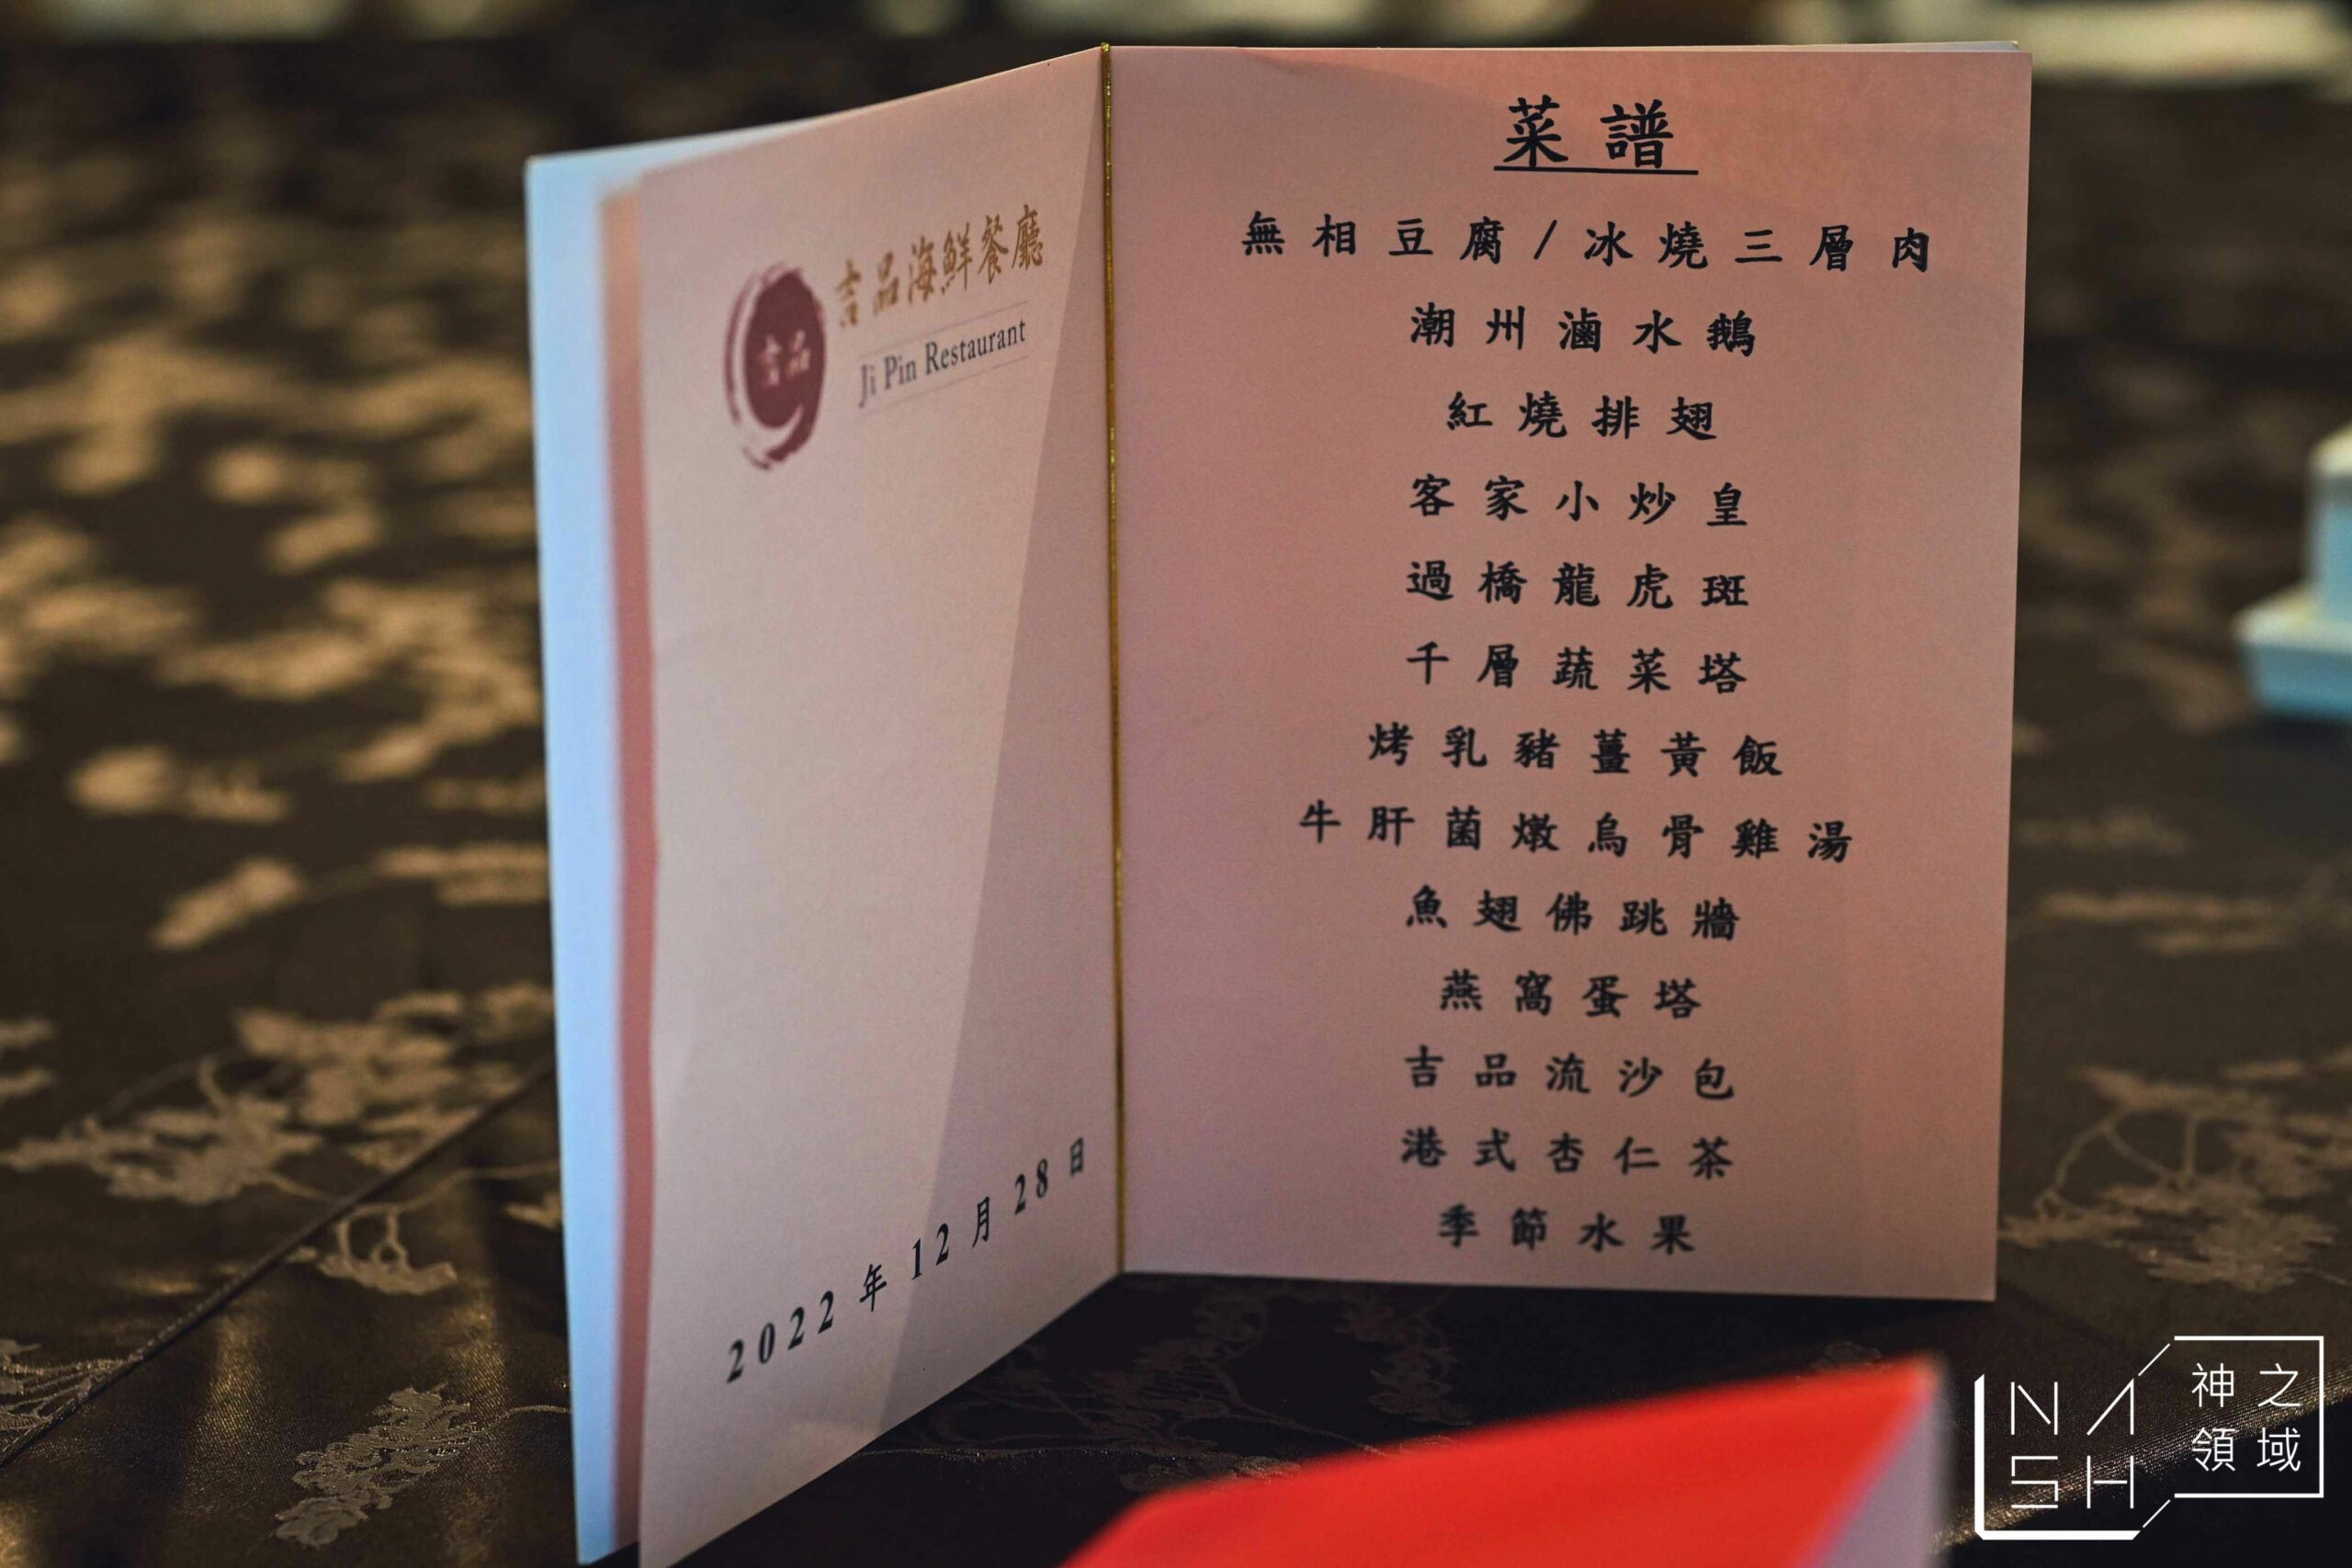 吉品海鮮餐廳
吉品
Ji Pin Restaurant
2022年12月28日
菜譜
無相豆腐/冰燒三層肉
潮州滷水鵝
紅燒排翅
客家小炒皇
過橋龍虎斑
千層蔬菜塔
烤乳豬薑黃飯
牛肝菌燉烏骨雞湯
魚翅佛跳牆
燕窩蛋塔
吉品流沙包
港式杏仁茶
季節水果
NASH
神之
領域